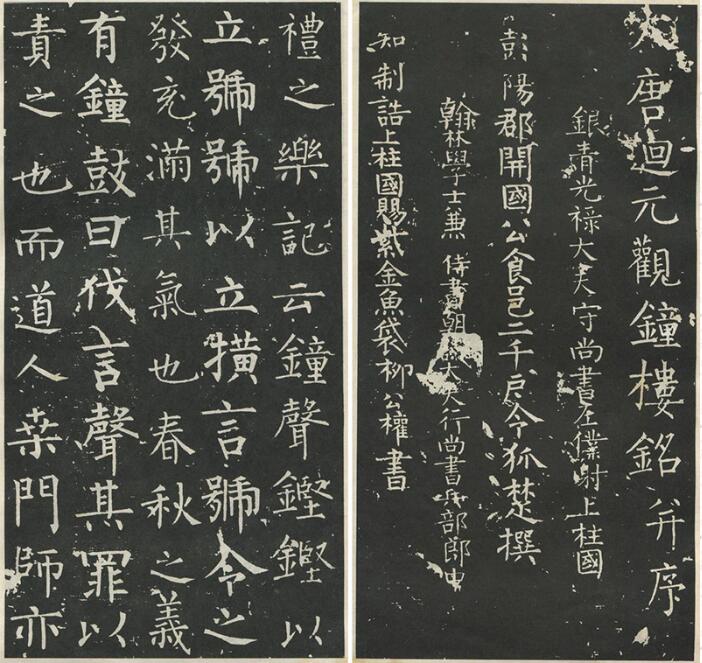 大唐迴元觀鐘樓銘并序
銀青光祿大夫守尚書左僕射上柱國
彭陽郡開國公食邑二千戶令狐楚撰
翰林學士兼侍書朝大夫行尚書部郎中
知制誥上柱國賜紫金魚袋柳公權書
禮之樂記云鐘聲鏗鏗以
立號號以立撗言號令之
發充滿其氣也春秋之義
有鐘鼓曰伐言聲其罪以
責之也而道人桒門師亦